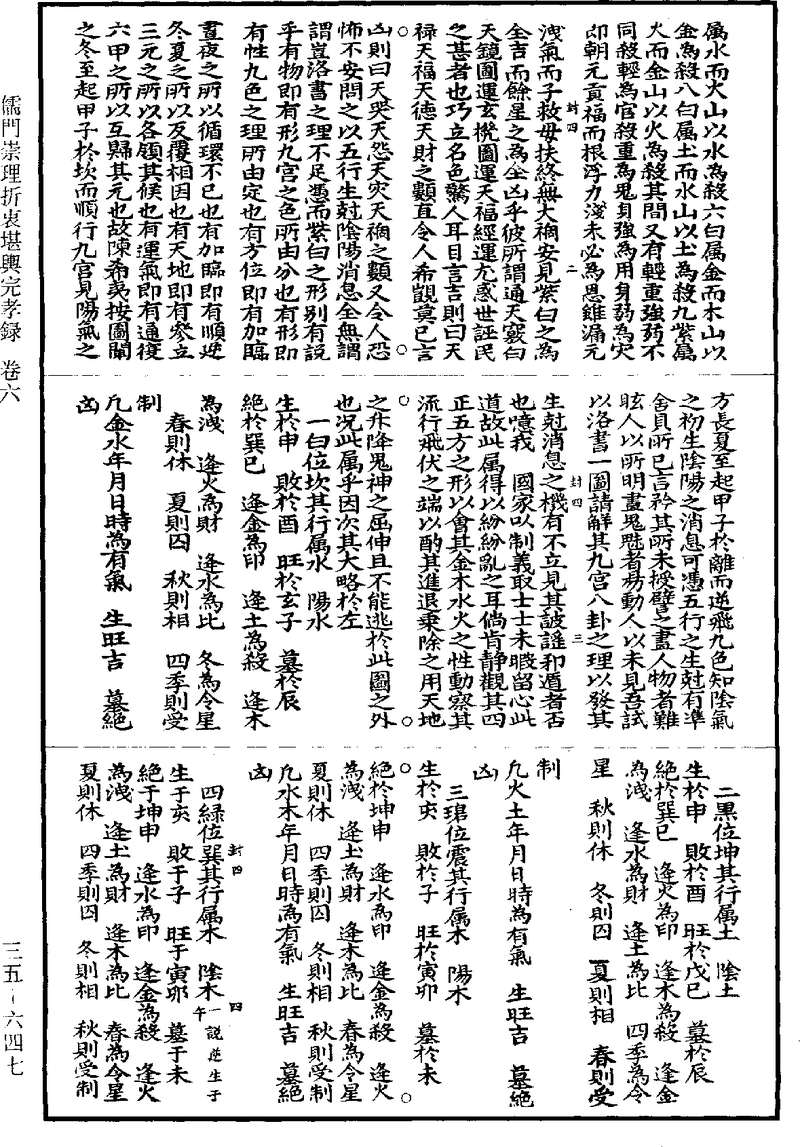 属水而火山以水為殺六白属金而木山以
金為殺八白属土而水山以土為殺九紫属
火而金山以火為殺其間又有輕重強弱不
同殺輕為官殺重為鬼身強為用身弱為灾
卽朝元貢福而根浮力淺未必為恩雖漏元
封四 二
洩氣而子救母扶終無大禍安見紫白之為
全吉而餘星之為全凶乎彼所謂通天竅白
天鏡圖運玄機圖運天福經運尤惑世誣民
之甚者也巧立名色驚人耳目言吉則曰天
禄天福天徳天財之類直令人希覬莫已言
凶則曰天哭天怨天灾天禍之類又令人恐
怖不安問之以五行生尅陰陽消息全無謂
謂豈洛書之理不足憑而紫白之形别有説
乎有物即有形九宫之色所由分也有形即
有性九色之理所由定也有方位即有加臨
晝夜之所以循環不已也有加臨即有順逆
冬夏之所以反覆相因也有天地即有參立
三元之所以各領其候也有運氣即有通復
六甲之所以互歸其元也故陳希夷按圖闡
之冬至起甲子於坎而順行九宫見陽氣之
方長夏至起甲子於離而逆飛九色知陰氣
之初生陰陽之消息可憑五行之生尅有準
舍員所已言矜其所未授譬之畫人物者難
眩人以所明畫鬼魅者易動人以未見吾試
以洛書一圖請觧其九宫八卦之理以發其
封四 三
生尅消息之機有不立見其詖謡和遁者否
也噫我 國家以制義取士士未暇留心此
道故此属得以紛紛亂之耳倘肯静觀其四
正五方之形以會其金木水火之性動察其
流行飛伏之端以酌其進退乗除之用天地
之升降鬼神之屈伸且不能逃於此圖之外
也况此属乎因次其大略於左
一白位坎其行属水 陽水
生於申 敗於酉 旺於玄子 墓於辰
絶於巽巳 逢金為印 逢土為殺 逢木
為洩 逢火為財 逢水為比 冬為令星
春則休 夏則囚 秋則相 四季則受
制
凡金水年月日時為有氣 生旺吉 墓絶
凶
二黒位坤其行属土 陰土
生於申 敗於酉 旺於戊巳 墓於辰
絶於巽巳 逢火為印 逢木為殺 逢金
為洩 逢水為財 逢土為比 四季為令
星 秋則休 冬則囚 夏則相 春則受
制
凡火土年月日時為有氣 生旺吉 墓絶
凶
三瑻位震其行属木 陽木
生於亥 敗於子 旺於寅卯 墓於未
絶於坤申 逢水為印 逢金為殺 逢火
為洩 逢土為財 逢木為比 春為令星
夏則休 四季則囚 冬則相 秋則受制
凡水木年月日時為有氣 生旺吉 墓絶
凶
封四 四
四緑位巽其行属木 陰木 一説逆生于午
生于亥 敗于子 旺于寅卯 墓于未
絶于坤申 逢水為印 逢金為殺 逢火
為洩 逢土為財 逢木為比 春為令星
夏則休 四季則囚 冬則相 秋則受制
儒門崇理折衷堪輿完孝録 卷六
三五－六四七